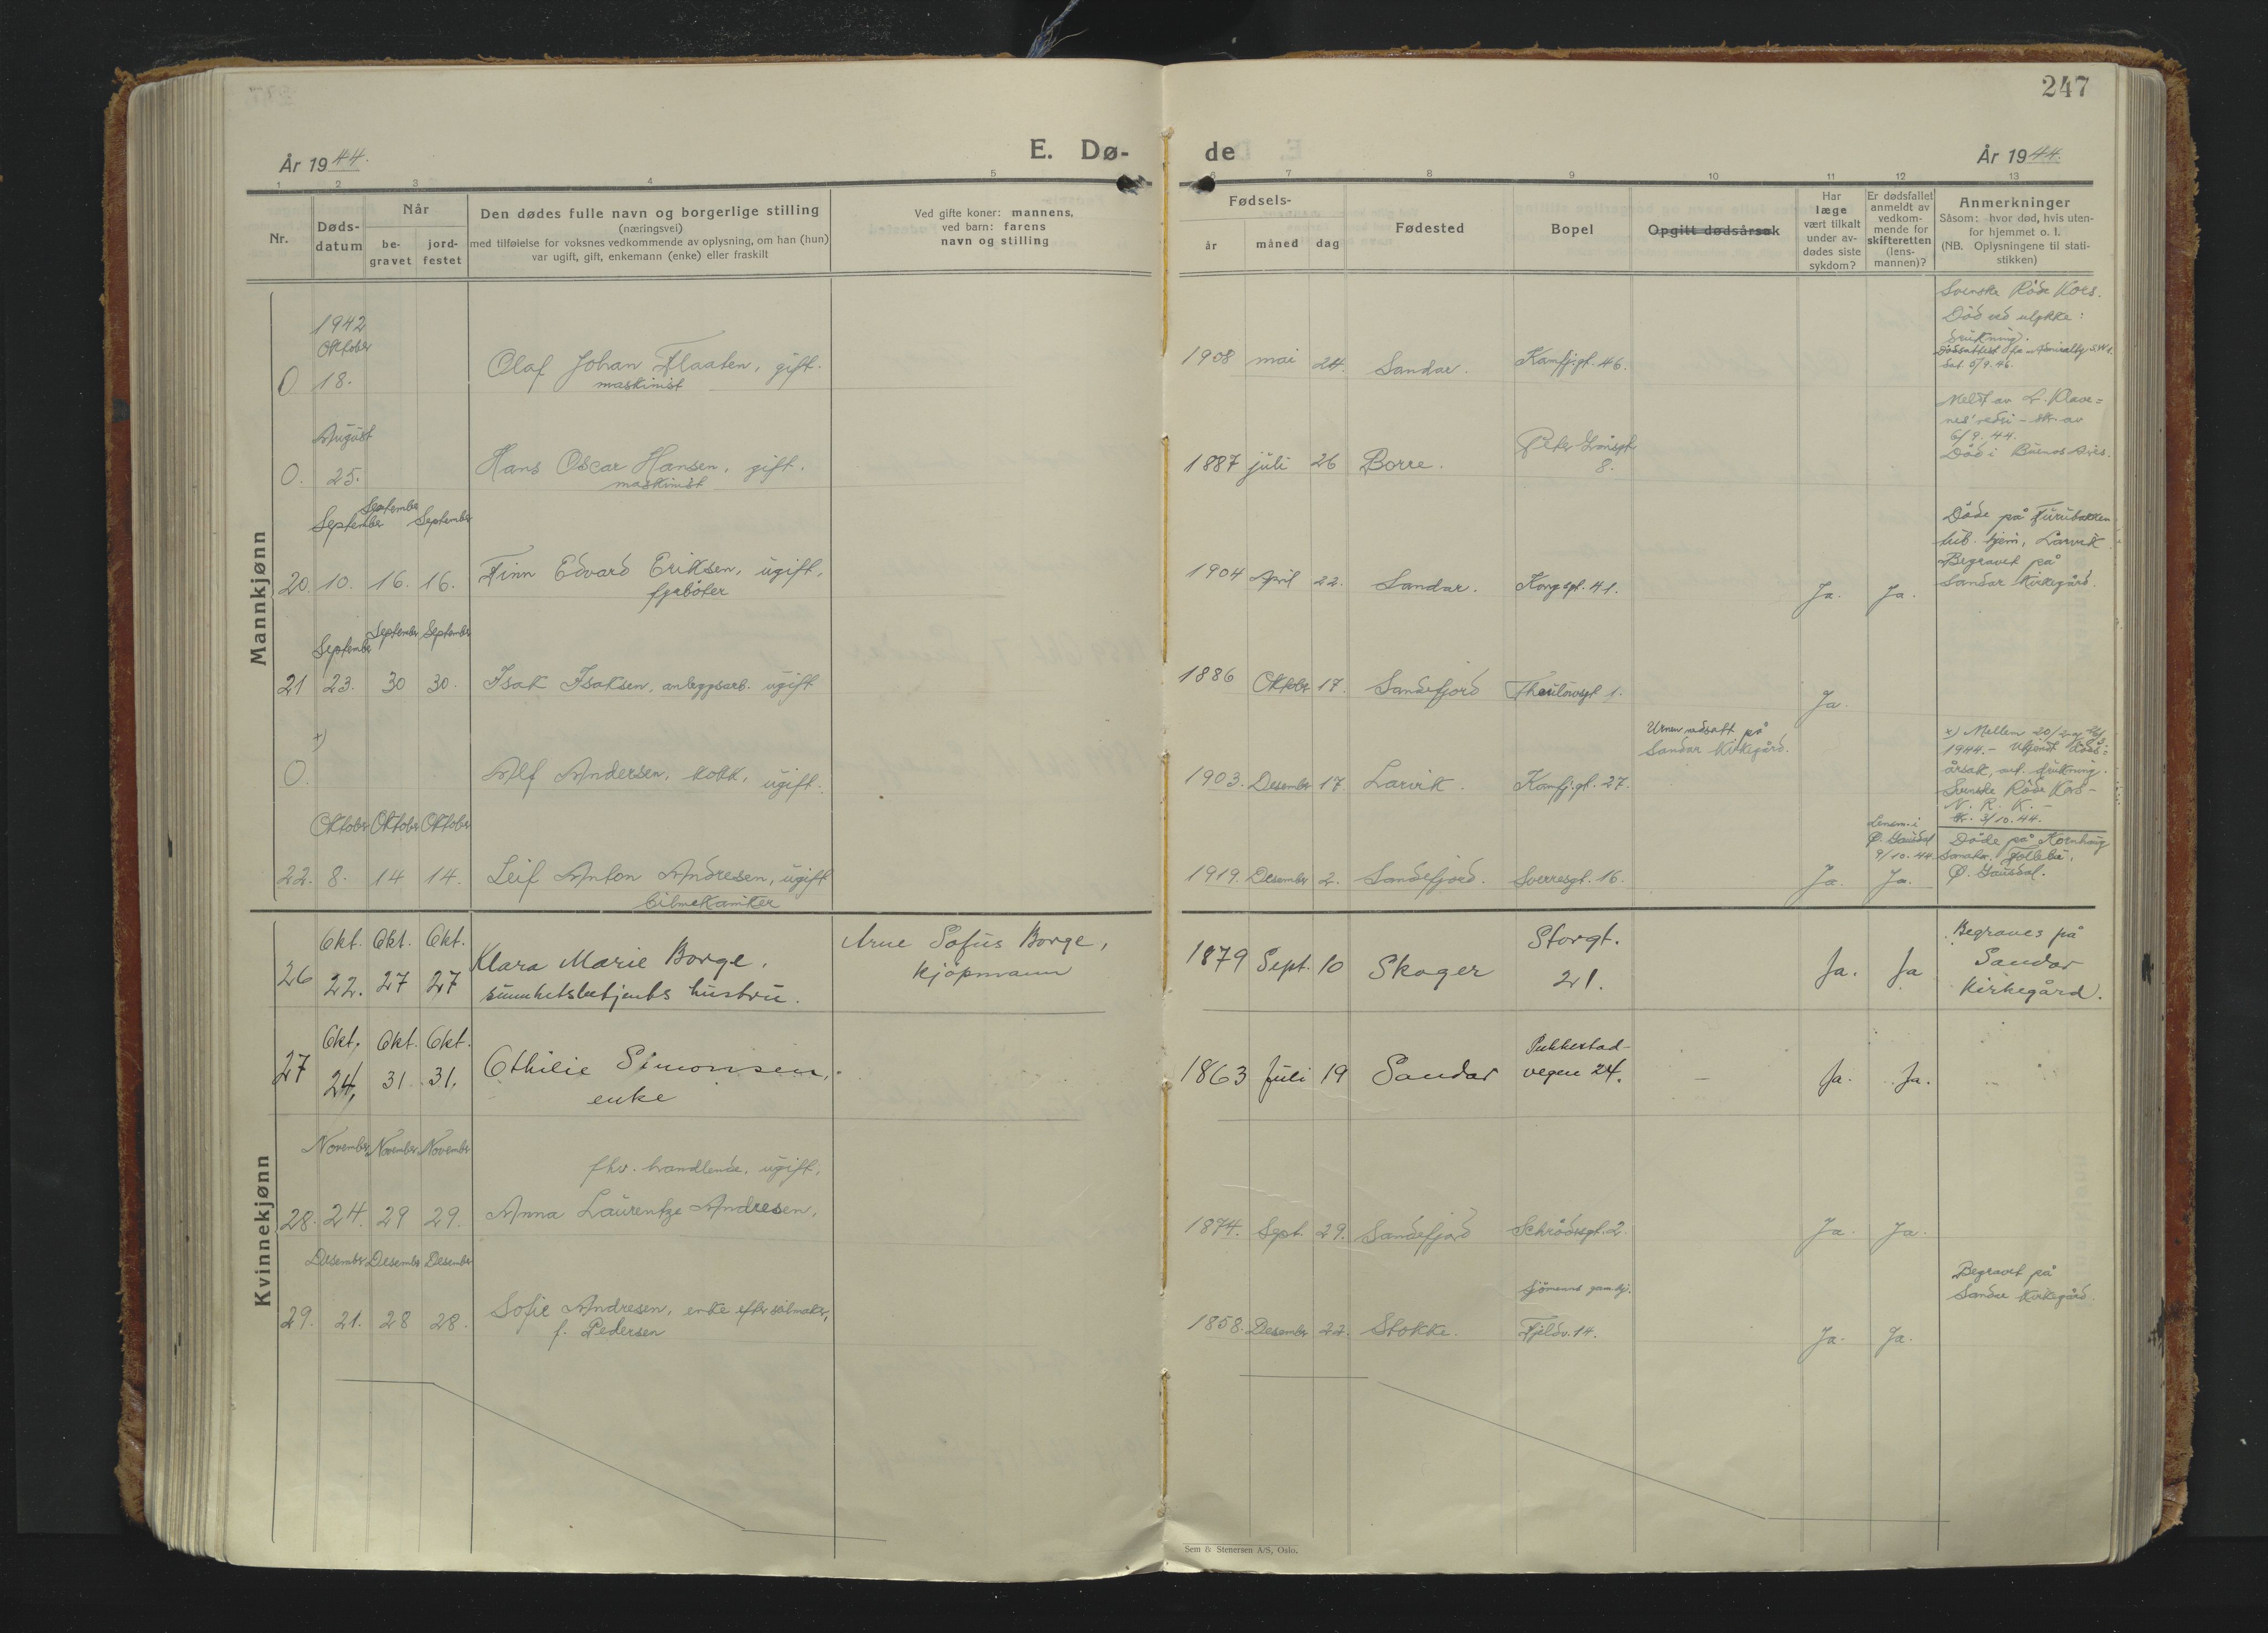 247
År 1944.
E. Dø-
de
År 1944.
1 2 3 4 5 6 7 8 9 10 11 12 13
Nr.
Døds-
datum
Når
be-
gravet
jord-
festet
Den dødes fulle navn og borgerlige stilling
(næringsvei)
med tilføielse for voksnes vedkommende av oplysning, om han (hun)
var ugift, gift, enkemann (enke) eller fraskilt
Ved gifte koner: mannens,
ved barn: farens
navn og stilling
Fødsels-
år måned dag
Fødested
Bopel
Opgitt dødsårsak
Har
læge
vært tilkalt
under av-
dødes siste
sykdom?
Er dødsfallet
anmeldt av
vedkom-
mende for
skifteretten
(lens-
mannen)?
Anmerkninger
Såsom: hvor død, hvis uten-
for hjemmet o. l.
(NB. Oplysningene til stati-
stikken)
Mannkjønn
1942
Oktober
0 18.
Olaf Johan Flaaten, gift.
maskinist
1908 mai 24. Sandar. Kamfj.gt. 46.
Svenske Röde Kors.
Död ved ulykke:
drukning.
Dödsattest fra Admiralty S.W.1.
dat. 5/9.46.
August
0. 25.
Hans Oscar Hansen, gift.
maskinist
1887 juli 26 Borre.
Peter
8.
Meldt av
6/9.44.
Död i Buenos Aires.
September September September
20. 10. 16. 16.
Finn Edvard Eriksen, ugift,
fyrböter
1904 April 22. Sandar. Kongsgt. 41. Ja. Ja.
Döde på Furubakken
tub. hjem, Larvik.
Begravet på
Sandar Kirkegård.
September September September
21 23. 30 30.
Isak Isaksen, anleggsarb. ugift
1886 Oktober 17. Sandefjord Thaulowsgt 1. Ja.
x)
0.
Alf Andersen, kokk, ugift.
1903. Desember 17. Larvik. Kamfj.gt. 27.
Urnen nedsatt på
Sandar Kirkegård.
x) Mellem 20/2 og
1944.- Ukjendt döds-
årsak, ant. drukning.
Svenske Röde Kors -
N. R. K. -
3/10.44.
Oktober Oktober Oktober
22. 8. 14 14.
Leif Anton Andresen, ugift
bilmekaniker
1919. Desember 2. Sandefjord. Sverresgt. 16. Ja.
Lensm. i
Ø. Gausdal
9/10.44.
Ja.
Döde på Kornhaug
Sanator. Follebu,
Ø. Gausdal.
Kvinnekjønn
Okt. Okt. Okt.
26 22. 27 27
Klara Marie Borge,
sunnhetsbetjents hustru.
Arne Sofus Borge,
kjöpmann
1879 Sept. 10 Skoger
Storgt.
21.
Ja. Ja
Begraves på
Sandar
Kirkegård.
Okt. Okt. Okt.
27 24, 31 31.
Othilie Simonsen,
enke
1863 Juli 19 Sandar
Pukkestad-
vegen 24.
— Ja. Ja.
November November November
28. 24. 29 29.
fhv. handlende, ugift,
Anna Laurentze Andresen,
1874. Sept. 29. Sandefjord Schrödersgt. 2. Ja. Ja.
Desember Desember Desember
29. 21. 28 28.
Sofie Andresen, enke efter seilmaker,
f. Pedersen
1858. Desember 22. Stokke.
Sjömenns gamlhj.
Fjeldv. 14.
Ja. Ja.
Begravet på
Sandar Kirkegård.
Sem & Stenersen A/S, Oslo.